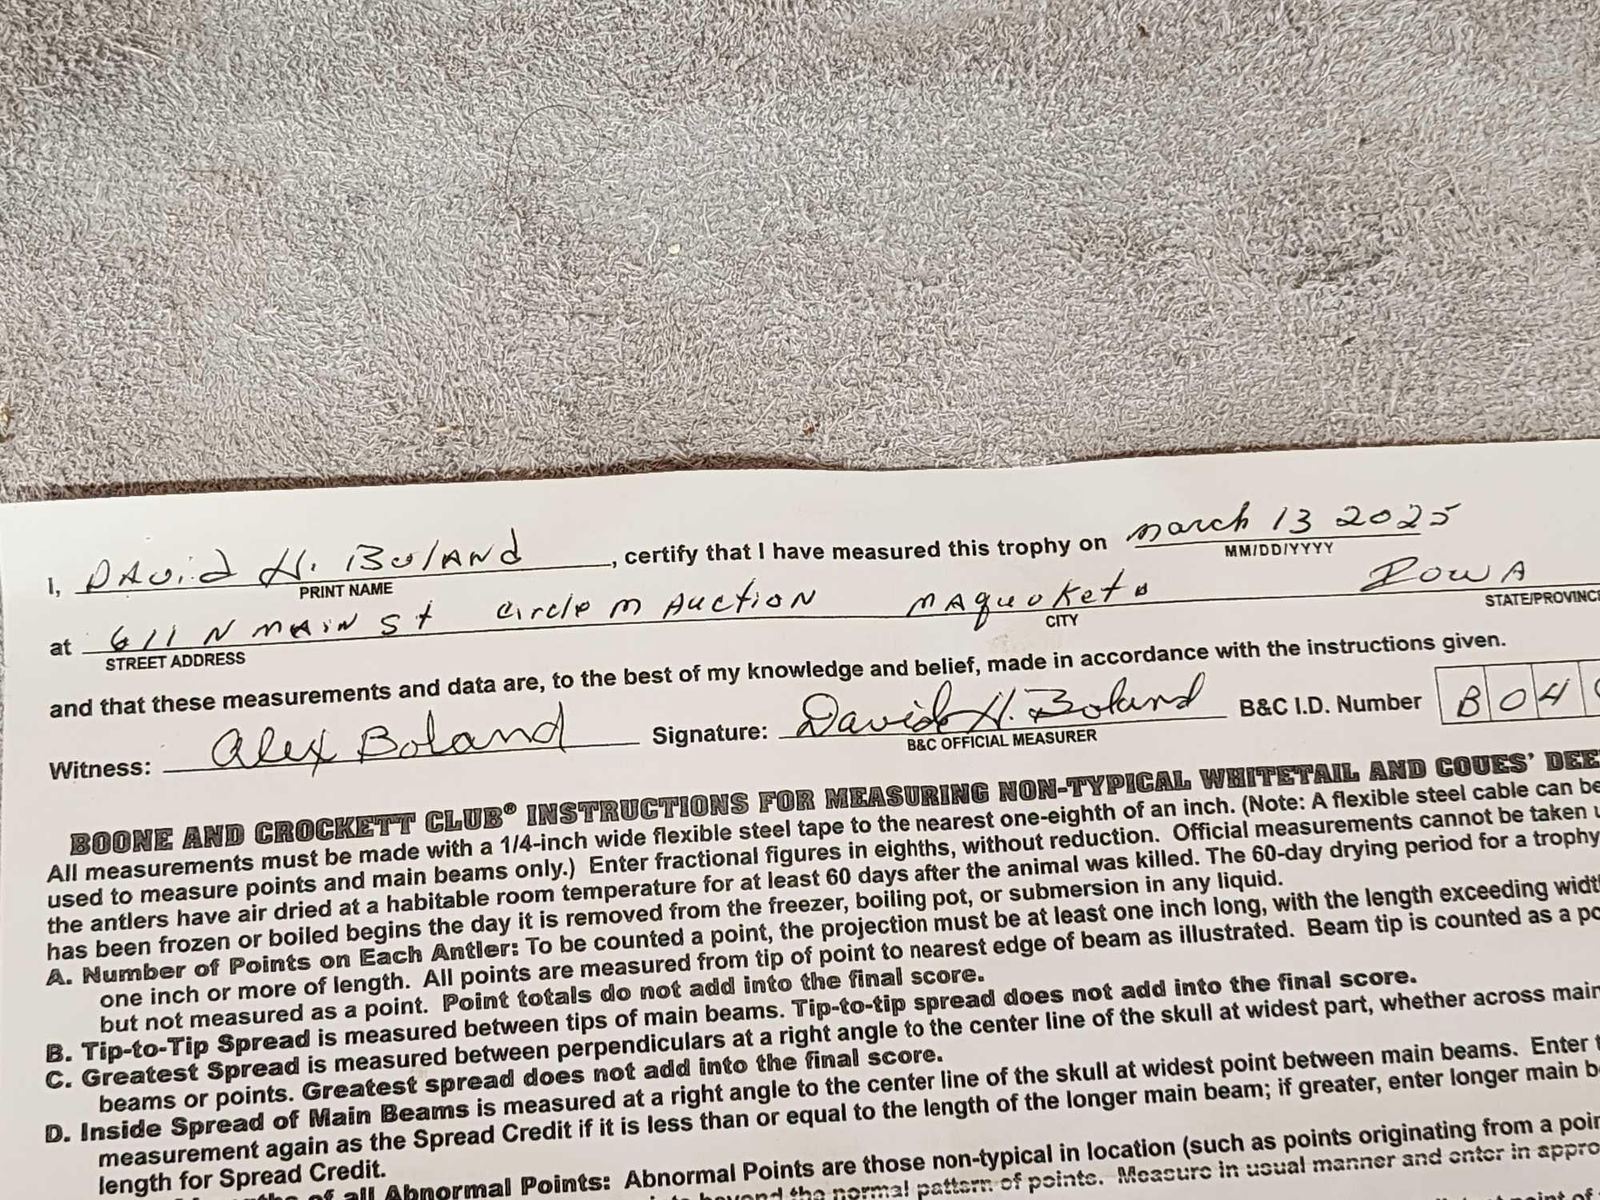 I, DAvid H. BolANd, certify that I have measured this trophy on march 13 2025
PRINT NAME MM/DD/YYYY
at 611 N MAIN St Circle M Auction MAquoketa Iowa
STREET ADDRESS CITY STATE/PROVINCE
and that these measurements and data are, to the best of my knowledge and belief, made in accordance with the instructions given.
Witness: Alex Boland Signature: David H. Boland B&C I.D. Number B 0 4
B&C OFFICIAL MEASURER
BOONE AND CROCKETT CLUB® INSTRUCTIONS FOR MEASURING NON-TYPICAL WHITETAIL AND COUES' DEE
All measurements must be made with a 1/4-inch wide flexible steel tape to the nearest one-eighth of an inch. (Note: A flexible steel cable can be
used to measure points and main beams only.) Enter fractional figures in eighths, without reduction. Official measurements cannot be taken u
the antlers have air dried at a habitable room temperature for at least 60 days after the animal was killed. The 60-day drying period for a trophy
has been frozen or boiled begins the day it is removed from the freezer, boiling pot, or submersion in any liquid.
A. Number of Points on Each Antler: To be counted a point, the projection must be at least one inch long, with the length exceeding widt
one inch or more of length. All points are measured from tip of point to nearest edge of beam as illustrated. Beam tip is counted as a po
but not measured as a point. Point totals do not add into the final score.
B. Tip-to-Tip Spread is measured between tips of main beams. Tip-to-tip spread does not add into the final score.
C. Greatest Spread is measured between perpendiculars at a right angle to the center line of the skull at widest part, whether across main
beams or points. Greatest spread does not add into the final score.
D. Inside Spread of Main Beams is measured at a right angle to the center line of the skull at widest point between main beams. Enter t
measurement again as the Spread Credit if it is less than or equal to the length of the longer main beam; if greater, enter longer main b
length for Spread Credit.
of all Abnormal Points: Abnormal Points are those non-typical in location (such as points originating from a poin
beyond the normal pattern of points. Measure in usual manner and enter in appro
point of